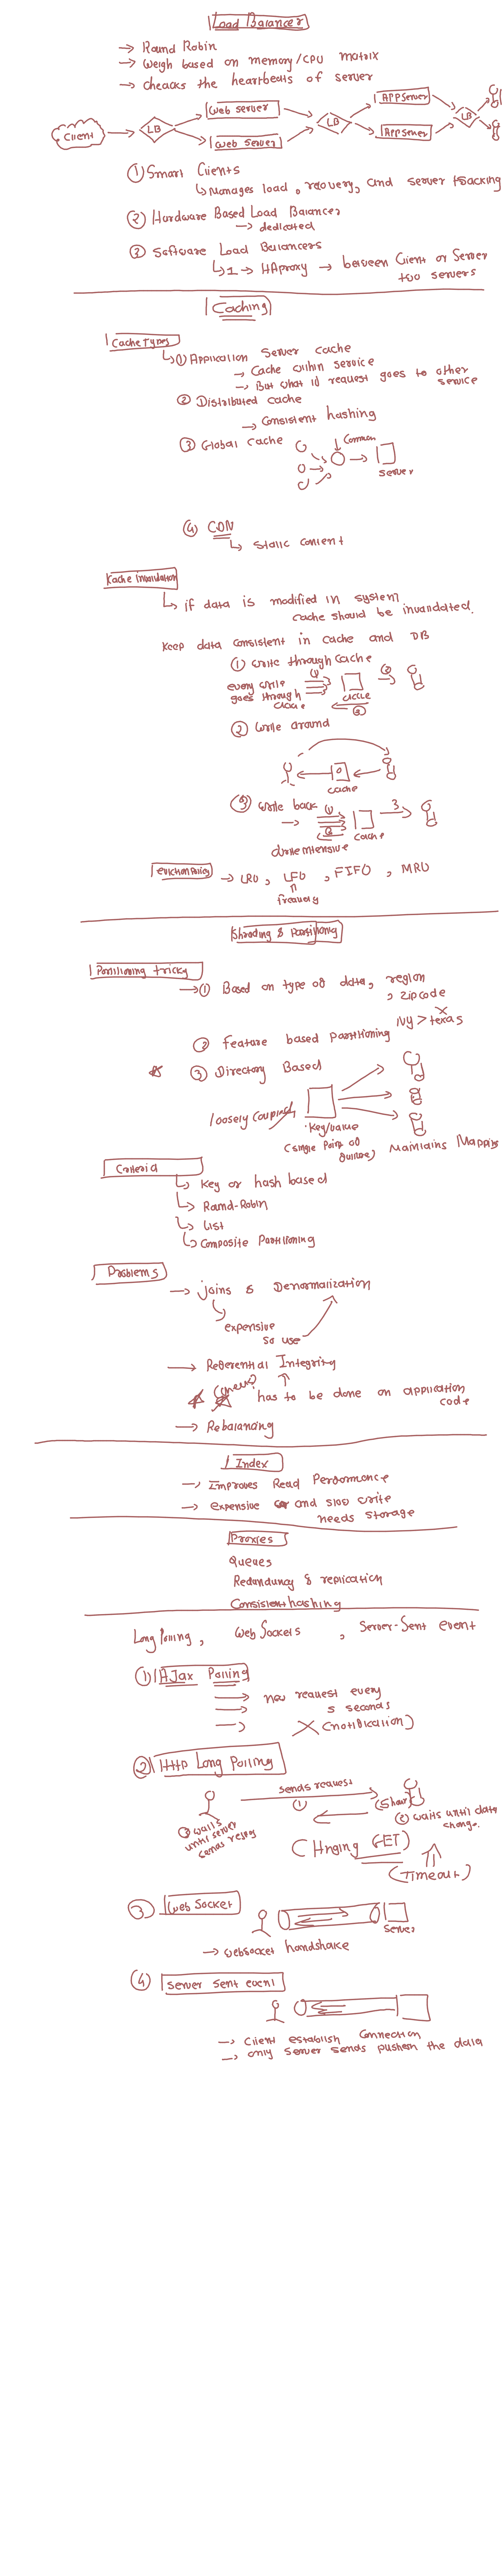 Load Balancer
→ Round Robin
→ Weigh based on memory/CPU matrix
→ cheacks the heartbeats of server
Client LB Web server Web Server LB APPServer AppServer LB
① Smart Clients
↳ Manages load, recovery, and server tracking
② Hardware Based Load Balancer
→ dedicated
③ Software Load Balancers
↳ 1 → HAproxy → between Client or Server
two servers
Caching
Cache Types
↳ ① Application Server cache
→ Cache within service
→ But what if request goes to other
service
② Distributed cache
→ Consistent hashing
③ Global cache
Common
Server
④ CDN
↳ Static content
Cache Invalidation
↳ if data is modified in system
cache should be invalidated.
Keep data consistent in cache and DB
① write through cache
every write
goes through
cache
cache
② Write around
cache
③ write back
→
cache
write intensive
Eviction Policy → LRU, LFU, FIFO, MRU
frequency
Sharding & Partitioning
Partitioning tricky
→ ① Based on type of data, region
, zipcode
NY > texas
② feature based partitioning
③ Directory Based
loosely coupled
key/value
(single point of
failure)
Maintains Mapping
Criteria
↳ Key or hash based
↳ Round-Robin
↳ List
↳ Composite Partitioning
Problems
→ joins & Denormalization
expensive
so use
→ Referential Integrity
has to be done on application
code
→ Rebalancing
Index
→ Improves Read Performance
→ expensive and slow write
needs storage
Proxies
Queues
Redundancy & replication
Consistent hashing
Long Polling, Web Sockets, Server-Sent event
① AJax Polling
new request every
5 seconds
X (notification)
② Http Long Polling
sends request
①
③ waits
until server
sends
② waits until data
change.
(Hnging GET)
(Timeout)
③ Web Socket
Server
→ Websocket handshake
④ Server Sent event
→ Client establish connection
→ only Server sends pushem the data